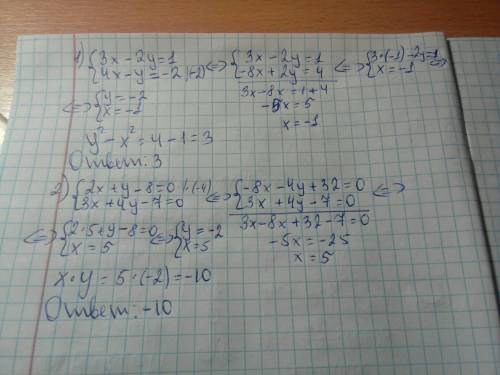 1) {3x-2y=1 <=> {3x-2y=1 <=> {3·(-1)-2y=1 <=>
{4x-y=-2 |·(-2) {-8x+2y=4 {x=-1
3x-8x=1+4
-5x=5
x=-1
<=> {y=-2
{x=-1
y²-x²=4-1=3
Ответ: 3
2) {2x+y-8=0 |·(-4) <=> {-8x-4y+32=0 <=>
{3x+4y-7=0 {3x+4y-7=0
3x-8x+32-7=0
-5x=-25
x=5
<=> {2·5+y-8=0 <=> {y=-2
{x=5 {x=5
x·y=5·(-2)=-10
Ответ: -10